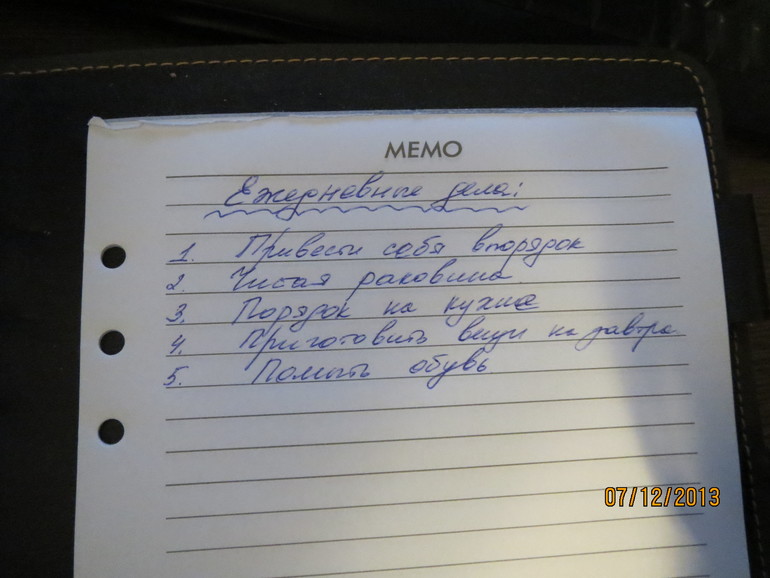 MEMO
Ежедневные дела:
1. Привести себя в порядок
2. Чистая раковина
3. Порядок на кухне
4. Приготовить вещи на завтра
5. Помыть обувь
07/12/2013